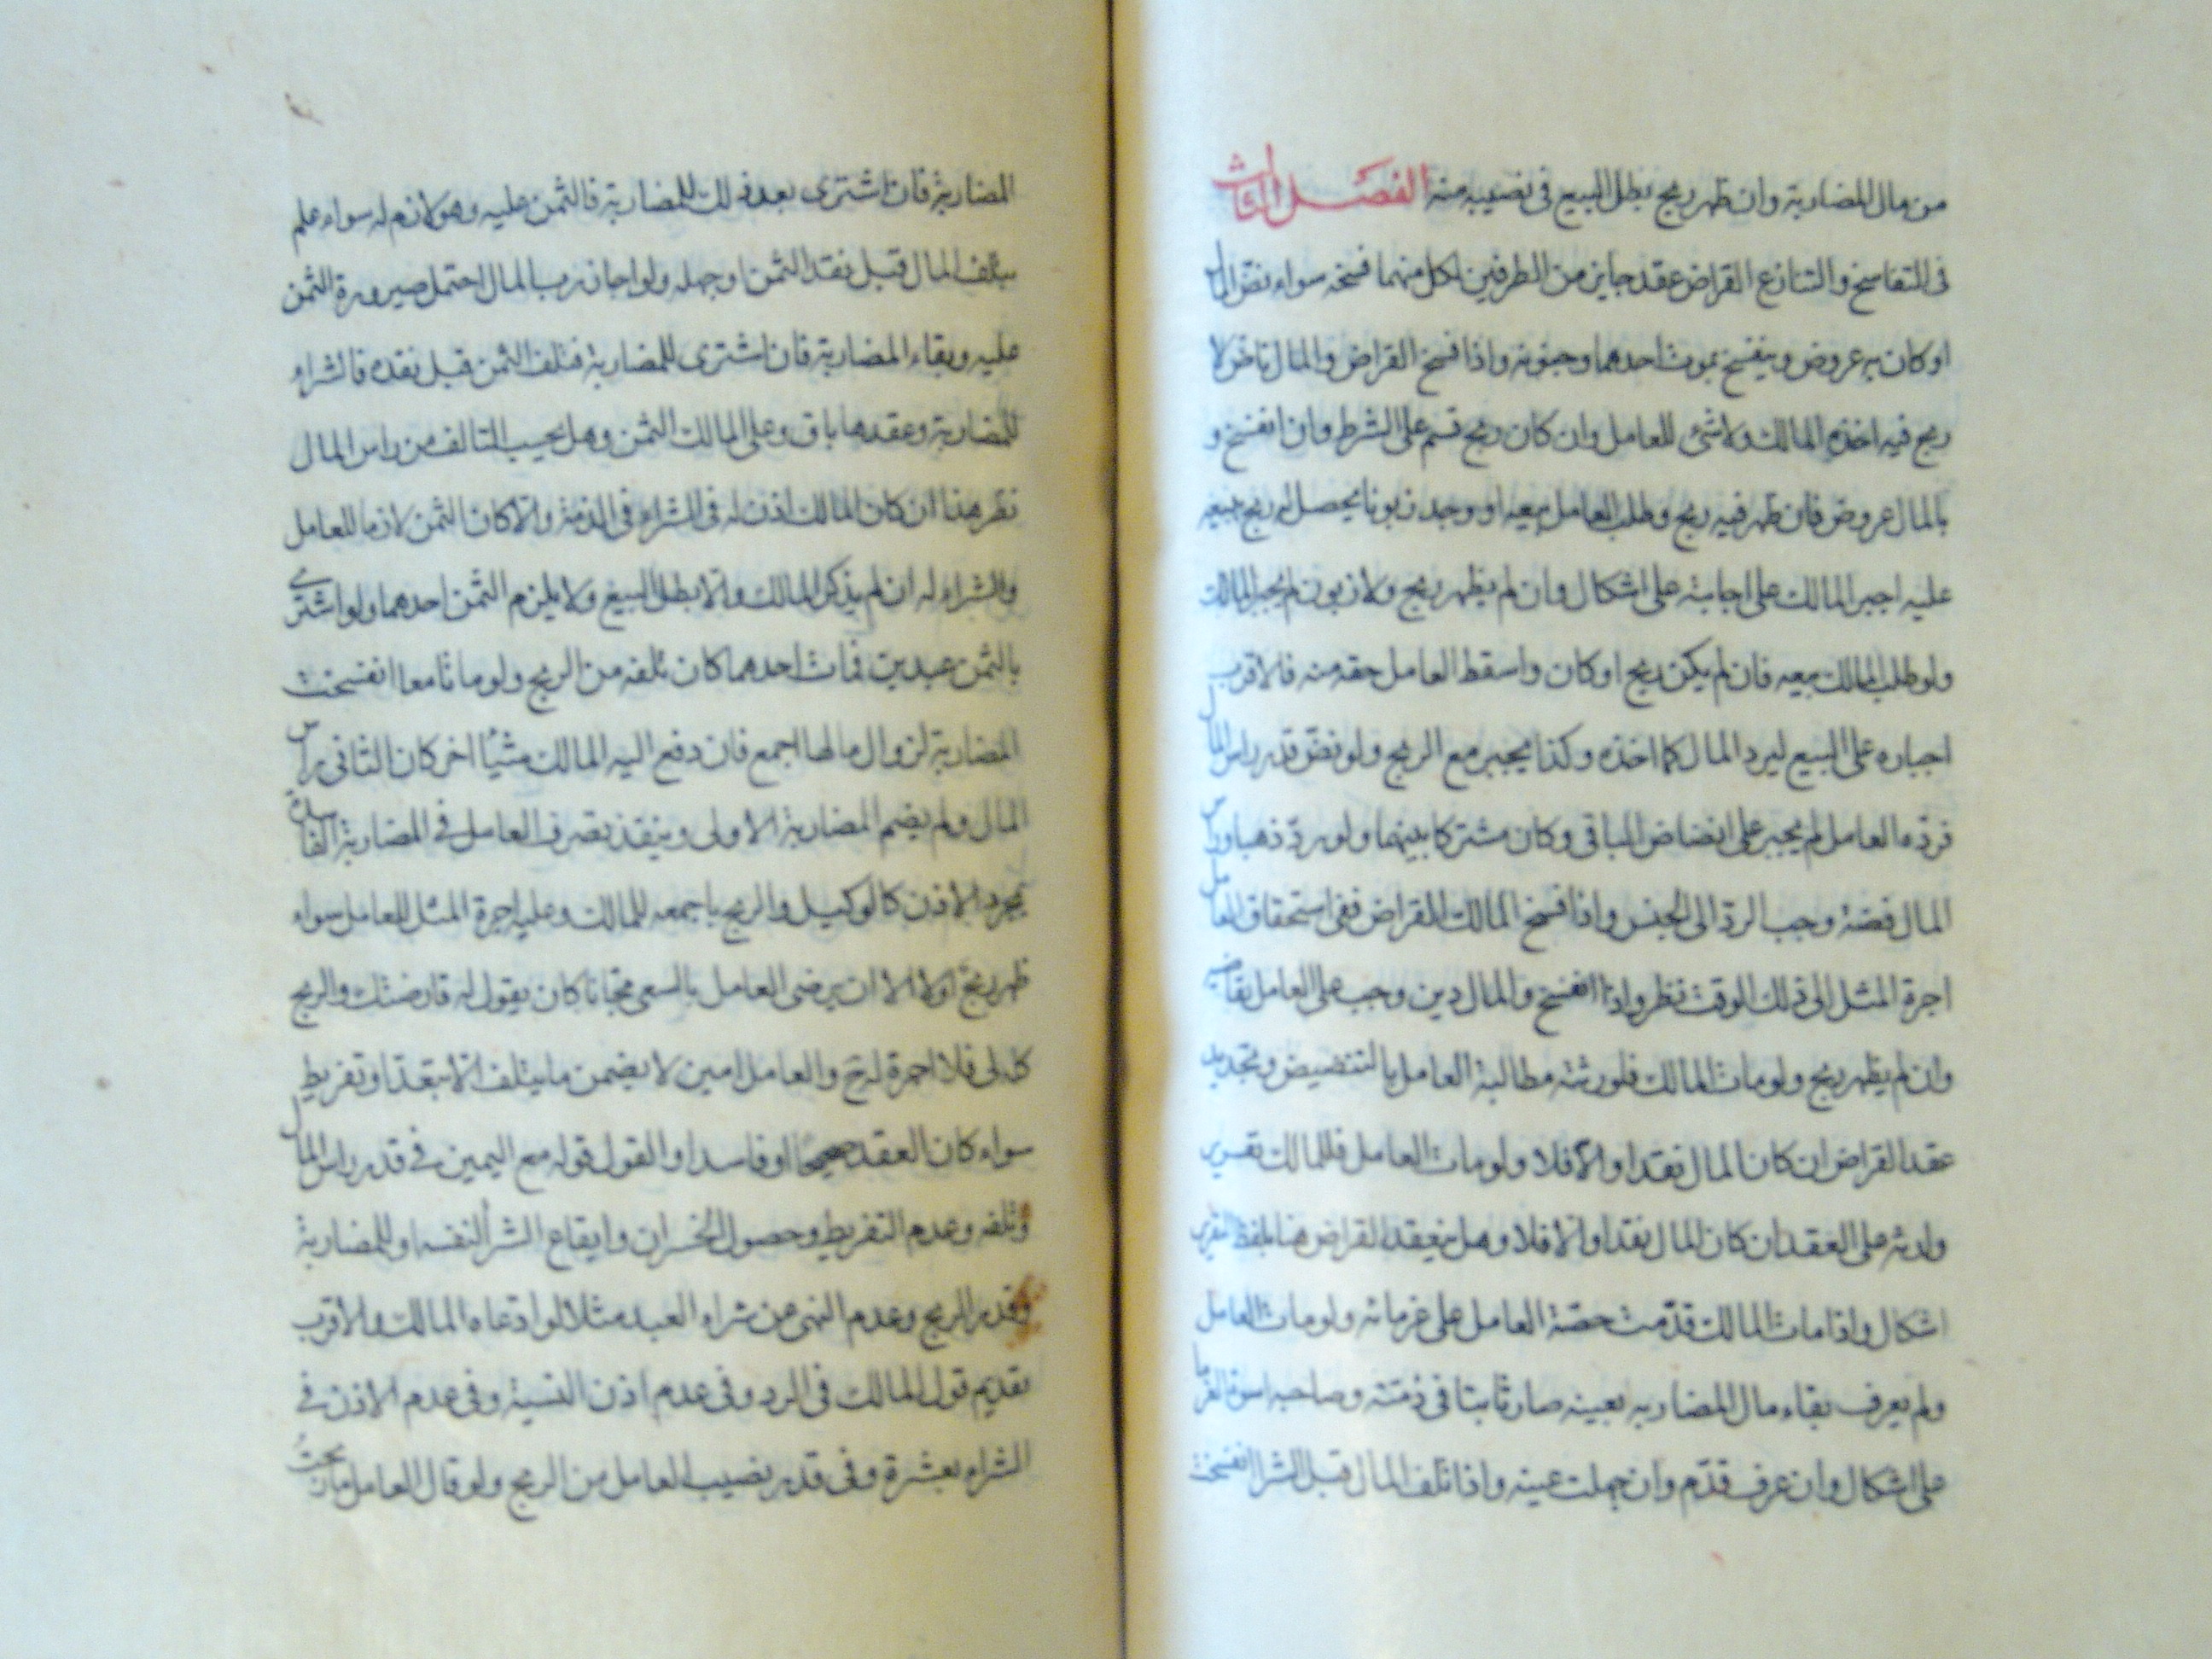 من مال المضاربة وان ظهر ربح بطل البيع فى نصيبه منه الفصل الثالث
فى التفاسخ والتنازع القراض عقد جايز من الطرفين لكل منهما فسخه سواء نض المال
او كان به عروض وينفسخ بموت احدهما وجنونه واذا فسخ القراض والمال ناض لا
ربح فيه اخذه المالك ولا شئ للعامل وان كان ربح قسم على الشرط وان انفسخ و
بالمال عروض فان ظهر فيه ربح وطلب العامل بيعه او وجد زبونا يحصل له ربح ببيعه
عليه اجبر المالك على اجابته على اشكال وان لم يظهر ربح ولا زبون لم يجبر المالك
ولو طلب المالك بيعه فان لم يكن ربح او كان واسقط العامل حقه منه فالاقرب
اجباره على البيع ليرد المال كما اخذه وكذا يجبر مع الربح ولو نض قدر راس المال
فرده العامل لم يجبر على انضاض الباقى وكان مشتركا بينهما ولو رد ذهبا وراس
المال فضة وجب الرد الى الجنس واذا فسخ المالك القراض ففى استحقاق العامل
اجرة المثل الى ذلك الوقت نظر واذا انفسخ والمال دين وجب على العامل تقاضيه
وان لم يظهر ربح ولو مات المالك فلورثته مطالبة العامل بالتنضيض وتجديد
عقد القراض ان كان المال نقدا والا فلا ولو مات العامل فللمالك تقرير
وارثه على العقد ان كان المال نقدا والا فلا وهل ينعقد القراض هنا بلفظ التقرير
اشكال واذا مات المالك قدمت حصة العامل على غرمائه ولو مات العامل
ولم يعرف بقاء مال المضاربه بعينه صار ثابتا فى ذمته وصاحبه اسوة الغرما
على اشكال وان عرف قدم وان جهلت عينه واذا تلف المال قبل الشرا انفسخت
المضاربة فان اشترى بعد ذلك للمضاربة فالثمن عليه وهو لازم له سواء علم
بتلف المال قبل نقد الثمن او جهله ولو اجاز رب المال احتمل صيرورة الثمن
عليه وبقاء المضاربة فان اشترى للمضاربة فتلف الثمن قبل نقده فالشراء
للمضاربة وعقدها باق وعلى المالك الثمن وهل يحسب التالف من راس المال
نظر هذا ان كان المالك اذن له فى الشراء فى الذمة والا كان الثمن لازما للعامل
والشراء له ان لم يذكر المالك والا بطل البيع ولا يلزم الثمن احدهما ولو اشترى
بالثمن عبدين فمات احدهما كان تلفه من الربح ولو ماتا معا انفسخت
المضاربة لزوال مالها اجمع فان دفع اليه المالك شيئا اخر كان الثانى راس
المال ولم يضم المضاربة الاولى وينفذ تصرف العامل فى المضاربة الفاسدة
بمجرد الاذن كالوكيل والربح باجمعه للمالك وعليه اجرة المثل للعامل سواء
ظهر ربح اولا الا ان يرضى العامل بالسعى مجانا كان يقول له قارضتك والربح
كله لى فلا اجرة له ح والعامل امين لا يضمن ما يتلف الا بتعد او تفريط
سواء كان العقد صحيحا او فاسدا والقول قوله مع اليمين فى قدر راس المال
وتلفه وعدم التفريط وحصول الخسران وايقاع الشرا لنفسه او للمضاربة
وقدر الربح وعدم النهى عن شراء العبد مثلا لو ادعاه المالك والاقرب
تقديم قول المالك فى الرد وفى عدم اذن النسية وفى عدم الاذن فى
الشراء بعشرة وفى قدر نصيب العامل من الربح ولو قال العامل ما ربحت